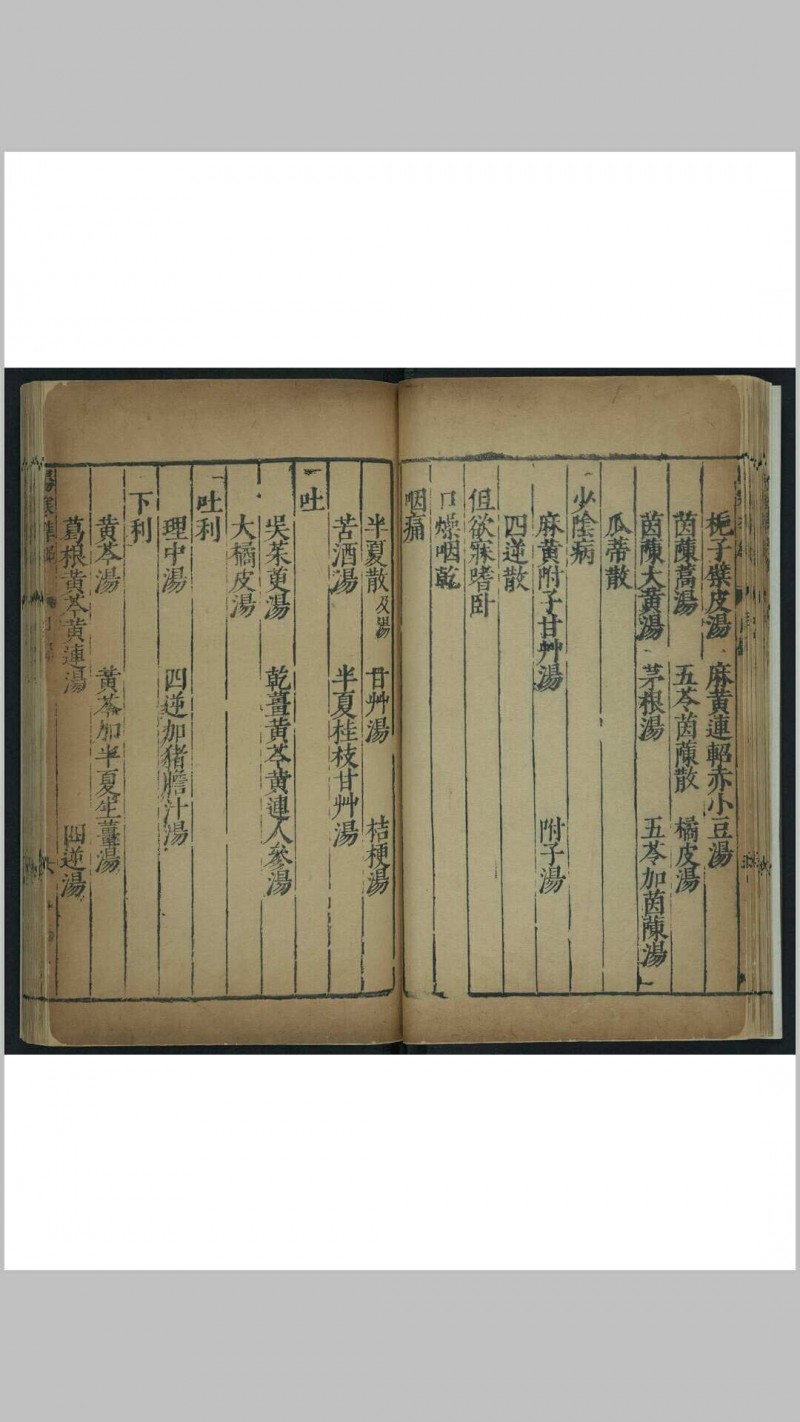 梔子蘗皮湯 麻黄連軺赤小豆湯
茵蔯蒿湯 五苓茵蔯散 橘皮湯
茵蔯大黄湯 茅根湯 五苓加茵蔯湯
瓜蒂散
少陰病
麻黄附子甘艸湯 附子湯
四逆散
但欲寐嗜卧
口燥咽乾
咽痛
半夏散及湯 甘艸湯 桔梗湯
苦酒湯 半夏桂枝甘艸湯
吐
吳茱萸湯 乾薑黄芩黄連人參湯
大橘皮湯
吐利
理中湯 四逆加猪膽汁湯
下利
黄芩湯 黄芩加半夏生薑湯
葛根黄芩黄連湯 四逆湯